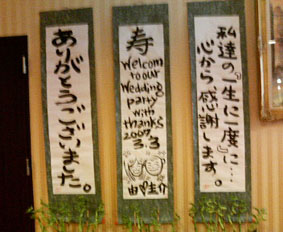 私達の『一生に一度』に…
心から感謝します。
寿
Welcom
to our
Wedding
party
with
thanks
2007
3.3
由 圭介
ありがとうございました。